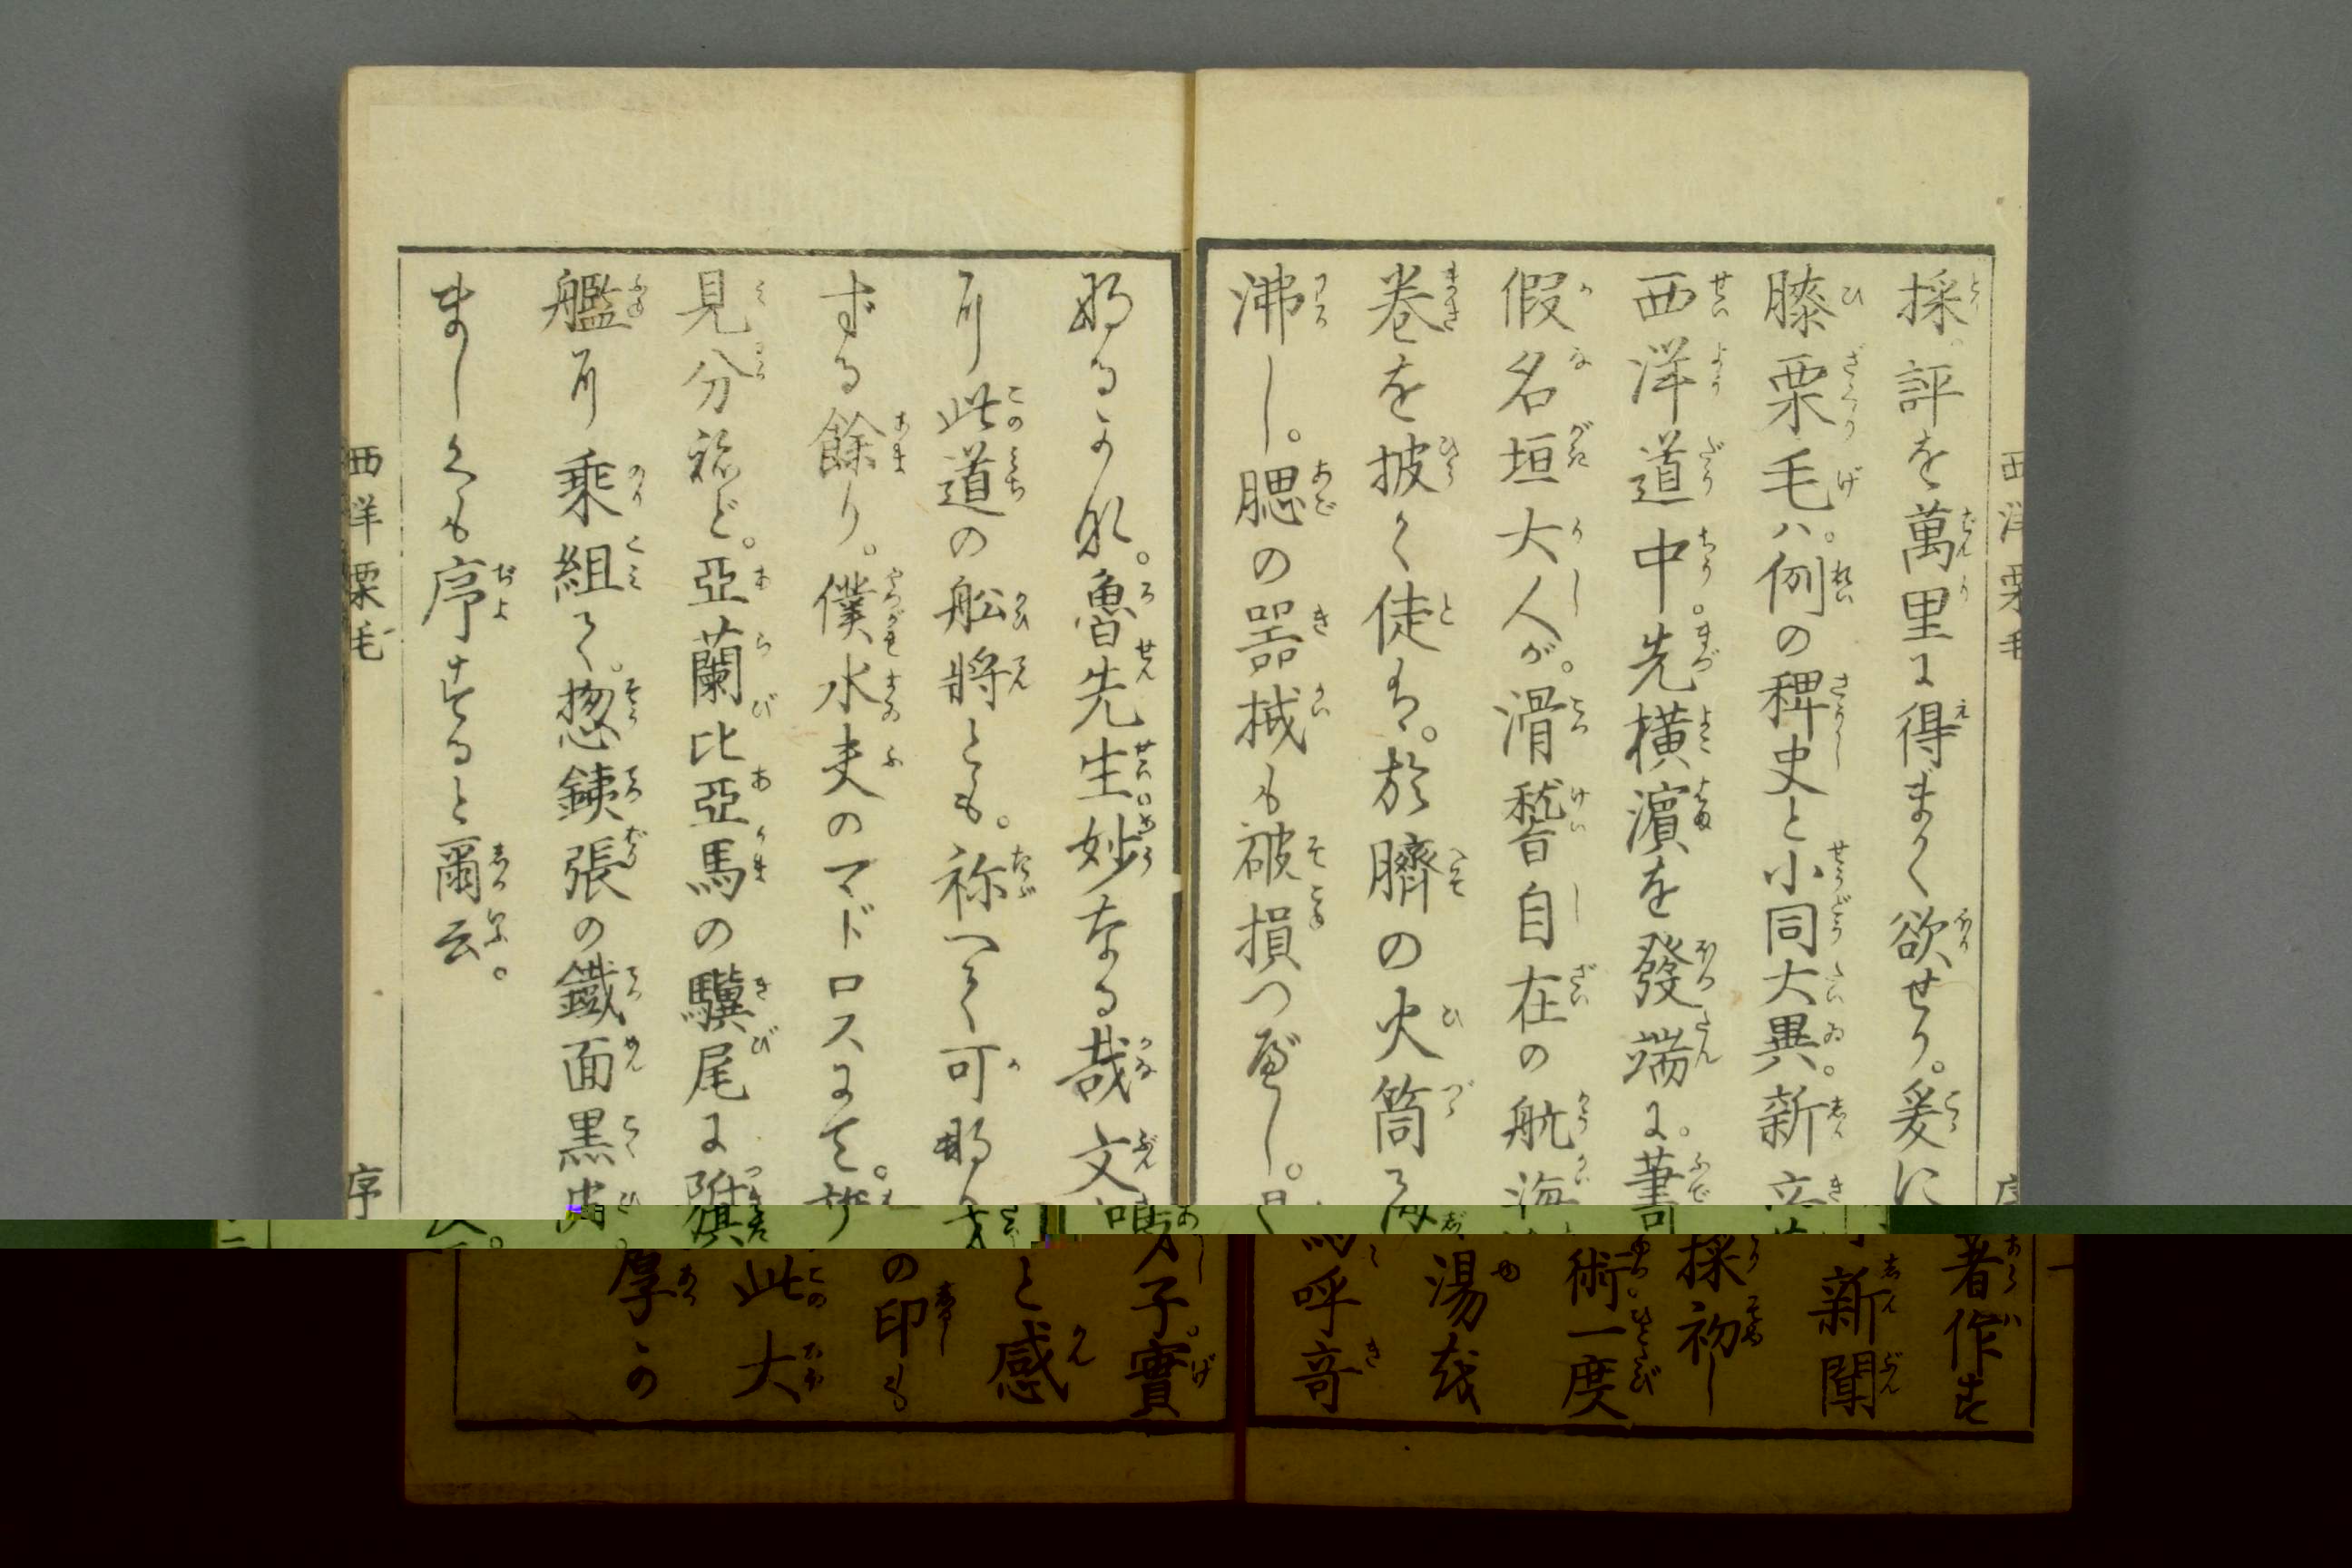 採。評を萬里に得まく欲せり。爰に
著作す
膝栗毛ハ。例の稗史と小同大異。新
新聞
西洋道中。先横濱を發端に。筆
採初し
假名垣大人が。滑稽自在の航海
術一度
巻を披く徒は。於臍の火筒
湯茂
沸し。腮の器械も破損つべし。
呼奇
なるかな。魯先生妙なる哉文
才子實
に此道の舩將とも。称へて可
と感
ずる餘り。僕水夫のマドロスまで。
の印も
見分ねど。亞蘭比亞馬の驥尾に附
此大
艦に乘組て。惣銕張の鐵面黒皮
厚か
ましくも序すると爾云。
西洋栗毛
序
西洋栗毛
序
一
二